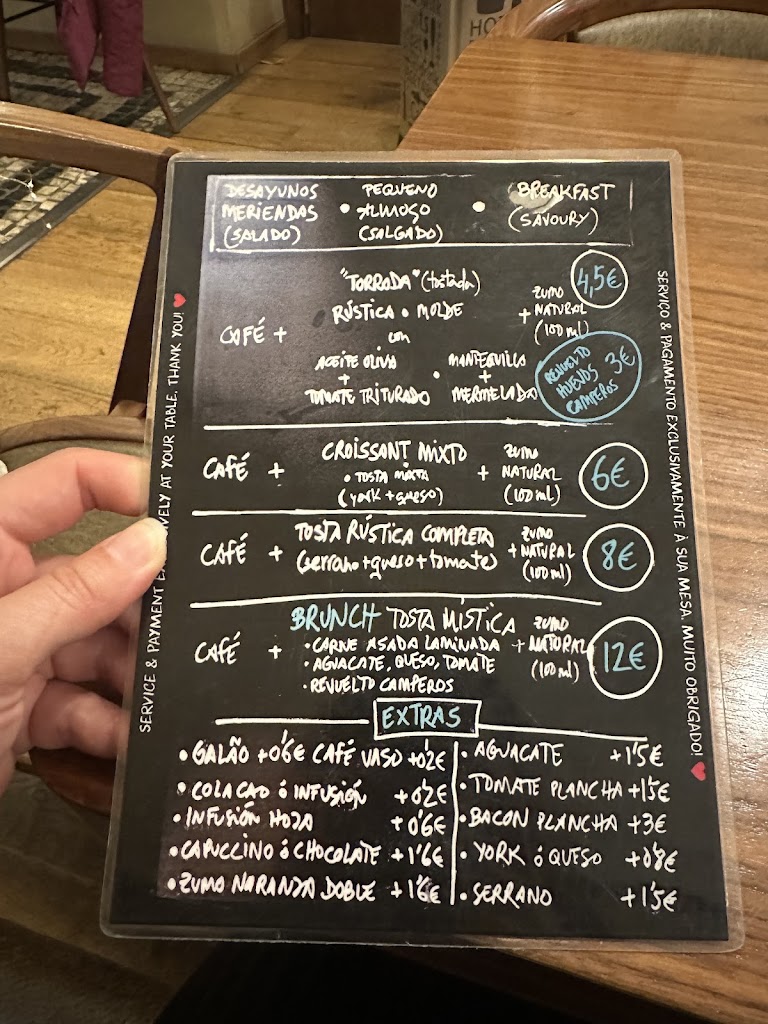 HO
DESAYUNOS
MERIENDAS
(SALADO)
•
PEQUENO
ALMOÇO
(SALGADO)
•
BREAKFAST
(SAVOURY)
CAFÉ +
"TORRADA" (tostada)
RÚSTICA o MOLDE
con
ACEITE OLIVA
+
TOMATE TRITURADO
•
MANTEQUILLA
+
MERMELADA
ZUMO
+ NATURAL
(100 ml)
4,5€
REVUELTO
HUEVOS 3€
CAMPEROS
CAFÉ +
CROISSANT MIXTO
o TOSTA MIXTA
(york + queso)
+
ZUMO
NATURAL
(100 ml)
6€
CAFÉ +
TOSTA RÚSTICA COMPLETA
(serrano + queso + tomate)
ZUMO
+ NATURAL
(100 ml)
8€
CAFÉ +
BRUNCH TOSTA MÍSTICA
• CARNE ASADA LAMINADA
• AGUACATE, QUESO, TOMATE
• REVUELTO CAMPEROS
ZUMO
+ NATURAL
(100 ml)
12€
EXTRAS
• GALÃO +0'6€ CAFÉ VASO +0'2€
• COLA CAO ó INFUSIÓN +0'2€
• INFUSIÓN HOJA +0'6€
• CAPUCCINO ó CHOCOLATE +1'6€
• ZUMO NARANJA DOBLE +1'6€
• AGUACATE +1'5€
• TOMATE PLANCHA +1'5€
• BACON PLANCHA +3€
• YORK ó QUESO +0'8€
• SERRANO +1'5€
SERVICE & PAYMENT AT YOUR TABLE. THANK YOU! ♥
SERVIÇO & PAGAMENTO EXCLUSIVAMENTE À SUA MESA. MUITO OBRIGADO! ♥